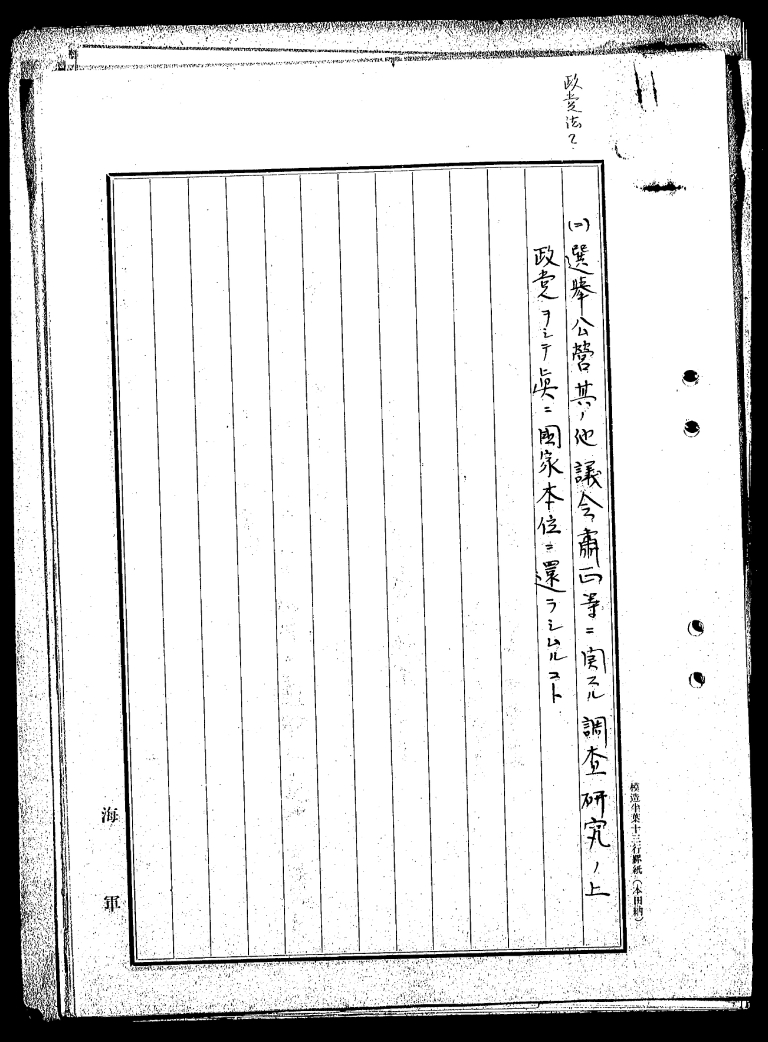 政党法?
(二)選擧公営其ノ他議会肅正等ニ関スル調査研究ノ上
政党ヲシテ眞ニ國家本位ニ還ラシムルコト
模造半葉十三行罫紙(本田納)
海軍